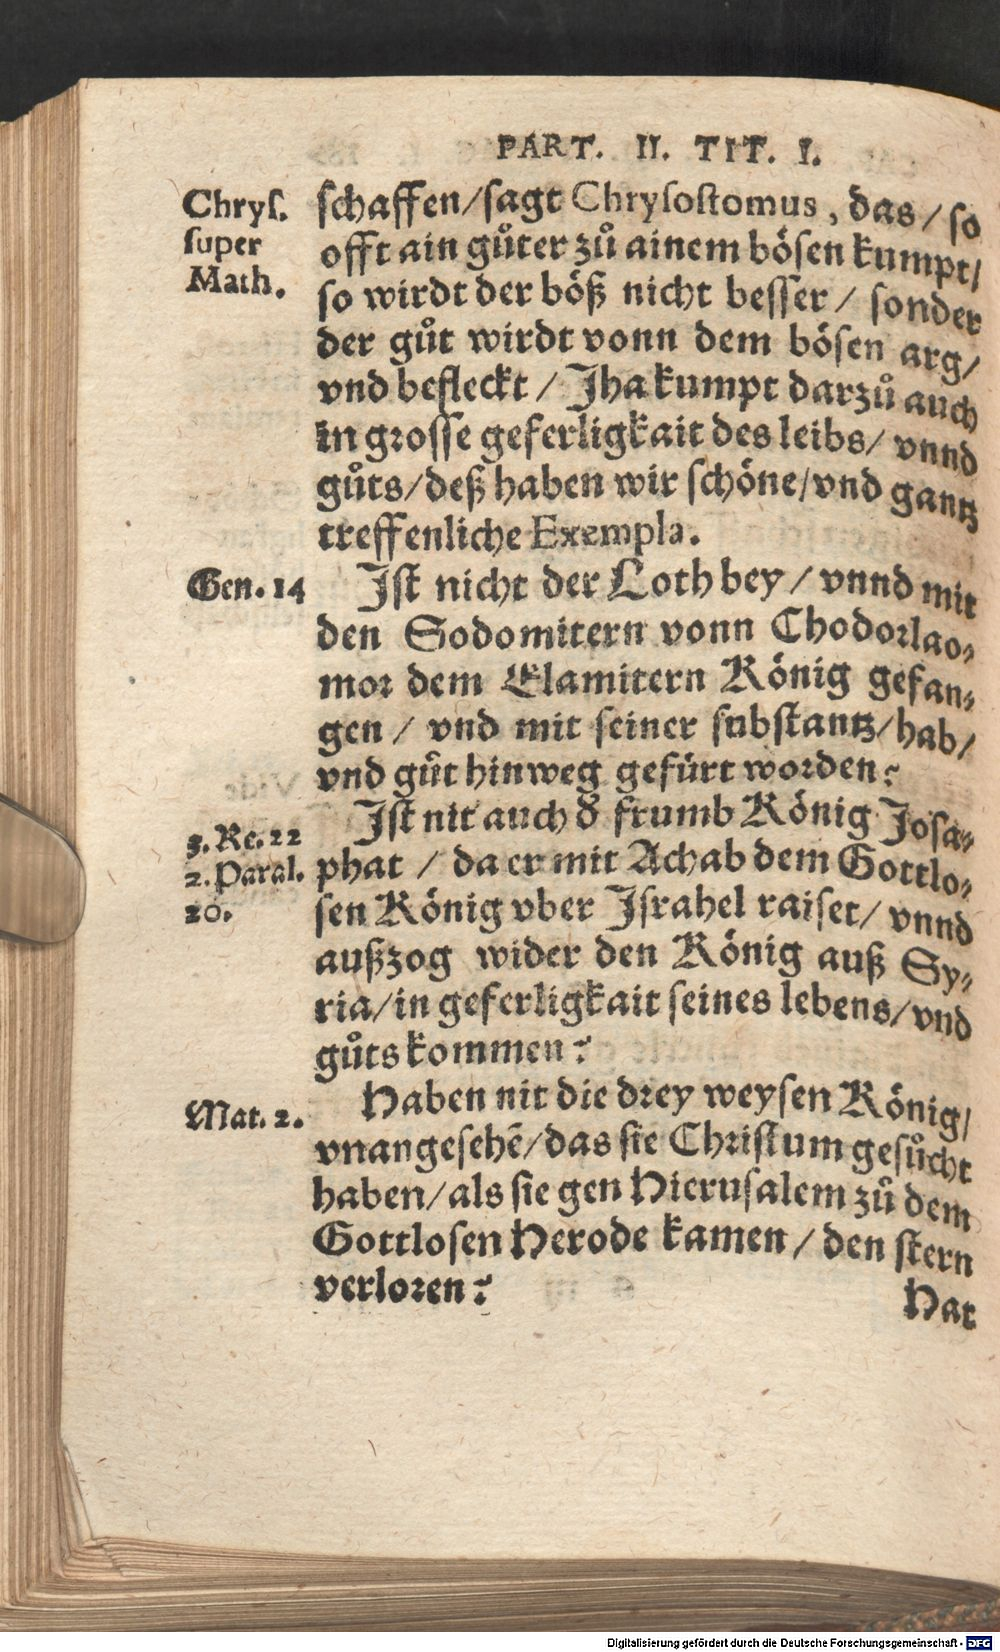 PART. II. TIT. I.
Chryſ.
ſuper
Math.
ſchaffen/ſagt Chryſoſtomus, das/ſo
offt ain guͦter zuͦ ainem böſen kumpt/
ſo wirdt der böß nicht beſſer/ ſonder
der guͦt wirdt vonn dem böſen arg/
vnd befleckt/ Jha kumpt darzuͦ auch
in groſſe geferligkait des leibs/ vnnd
guͦts/deß haben wir ſchöne/vnd gantz
treffenliche Exempla.
Gen. 14
Iſt nicht der Loth bey/ vnnd mit
den Sodomitern vonn Chodorlao⸗
mor dem Elamitern König gefan⸗
gen/ vnd mit ſeiner ſubſtantz/hab/
vnd guͦt hinweg gefürt worden?
3. Re. 22
2. Paral.
20.
Iſt nit auch ð frumb König Joſa⸗
phat/ da er mit Achab dem Gottlo⸗
ſen König vber Iſrahel raiſet/ vnnd
außzog wider den König auß Sy⸗
ria/in geferligkait ſeines lebens/vnd
guͦts kommen?
Mat. 2.
Haben nit die drey weyſen König/
vnangeſehẽ/das ſie Chriſtum geſuͦcht
haben/als ſie gen Hieruſalem zuͦ dem
Gottloſen Herode kamen/den ſtern
verloren?
Hat
Digitalisierung gefördert durch die Deutsche Forschungsgemeinschaft - DFG